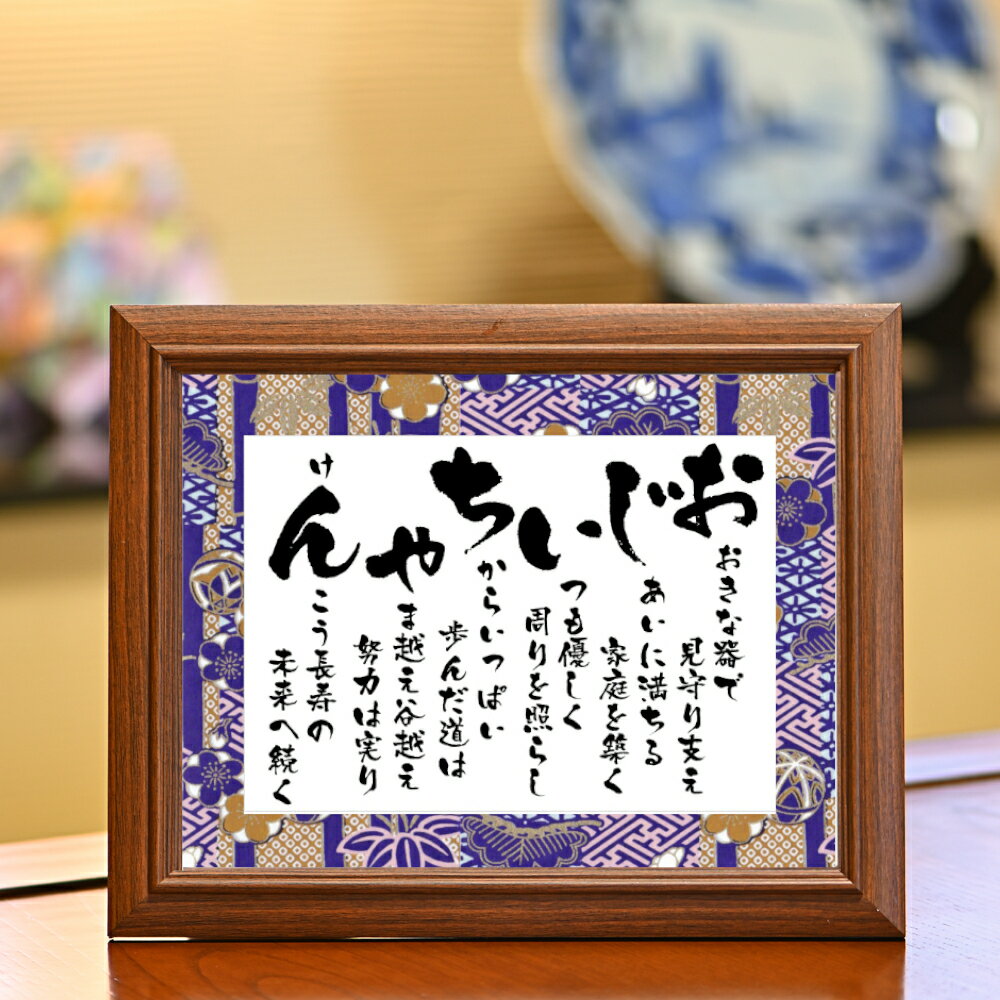 おじいちゃん
おきな器で
見守り支え
あいに満ちる
家庭を築く
つも優しく
周りを照らし
からいっぱい
歩んだ道は
ま越え谷越え
努力は実り
け
こう長寿の
未来へ続く